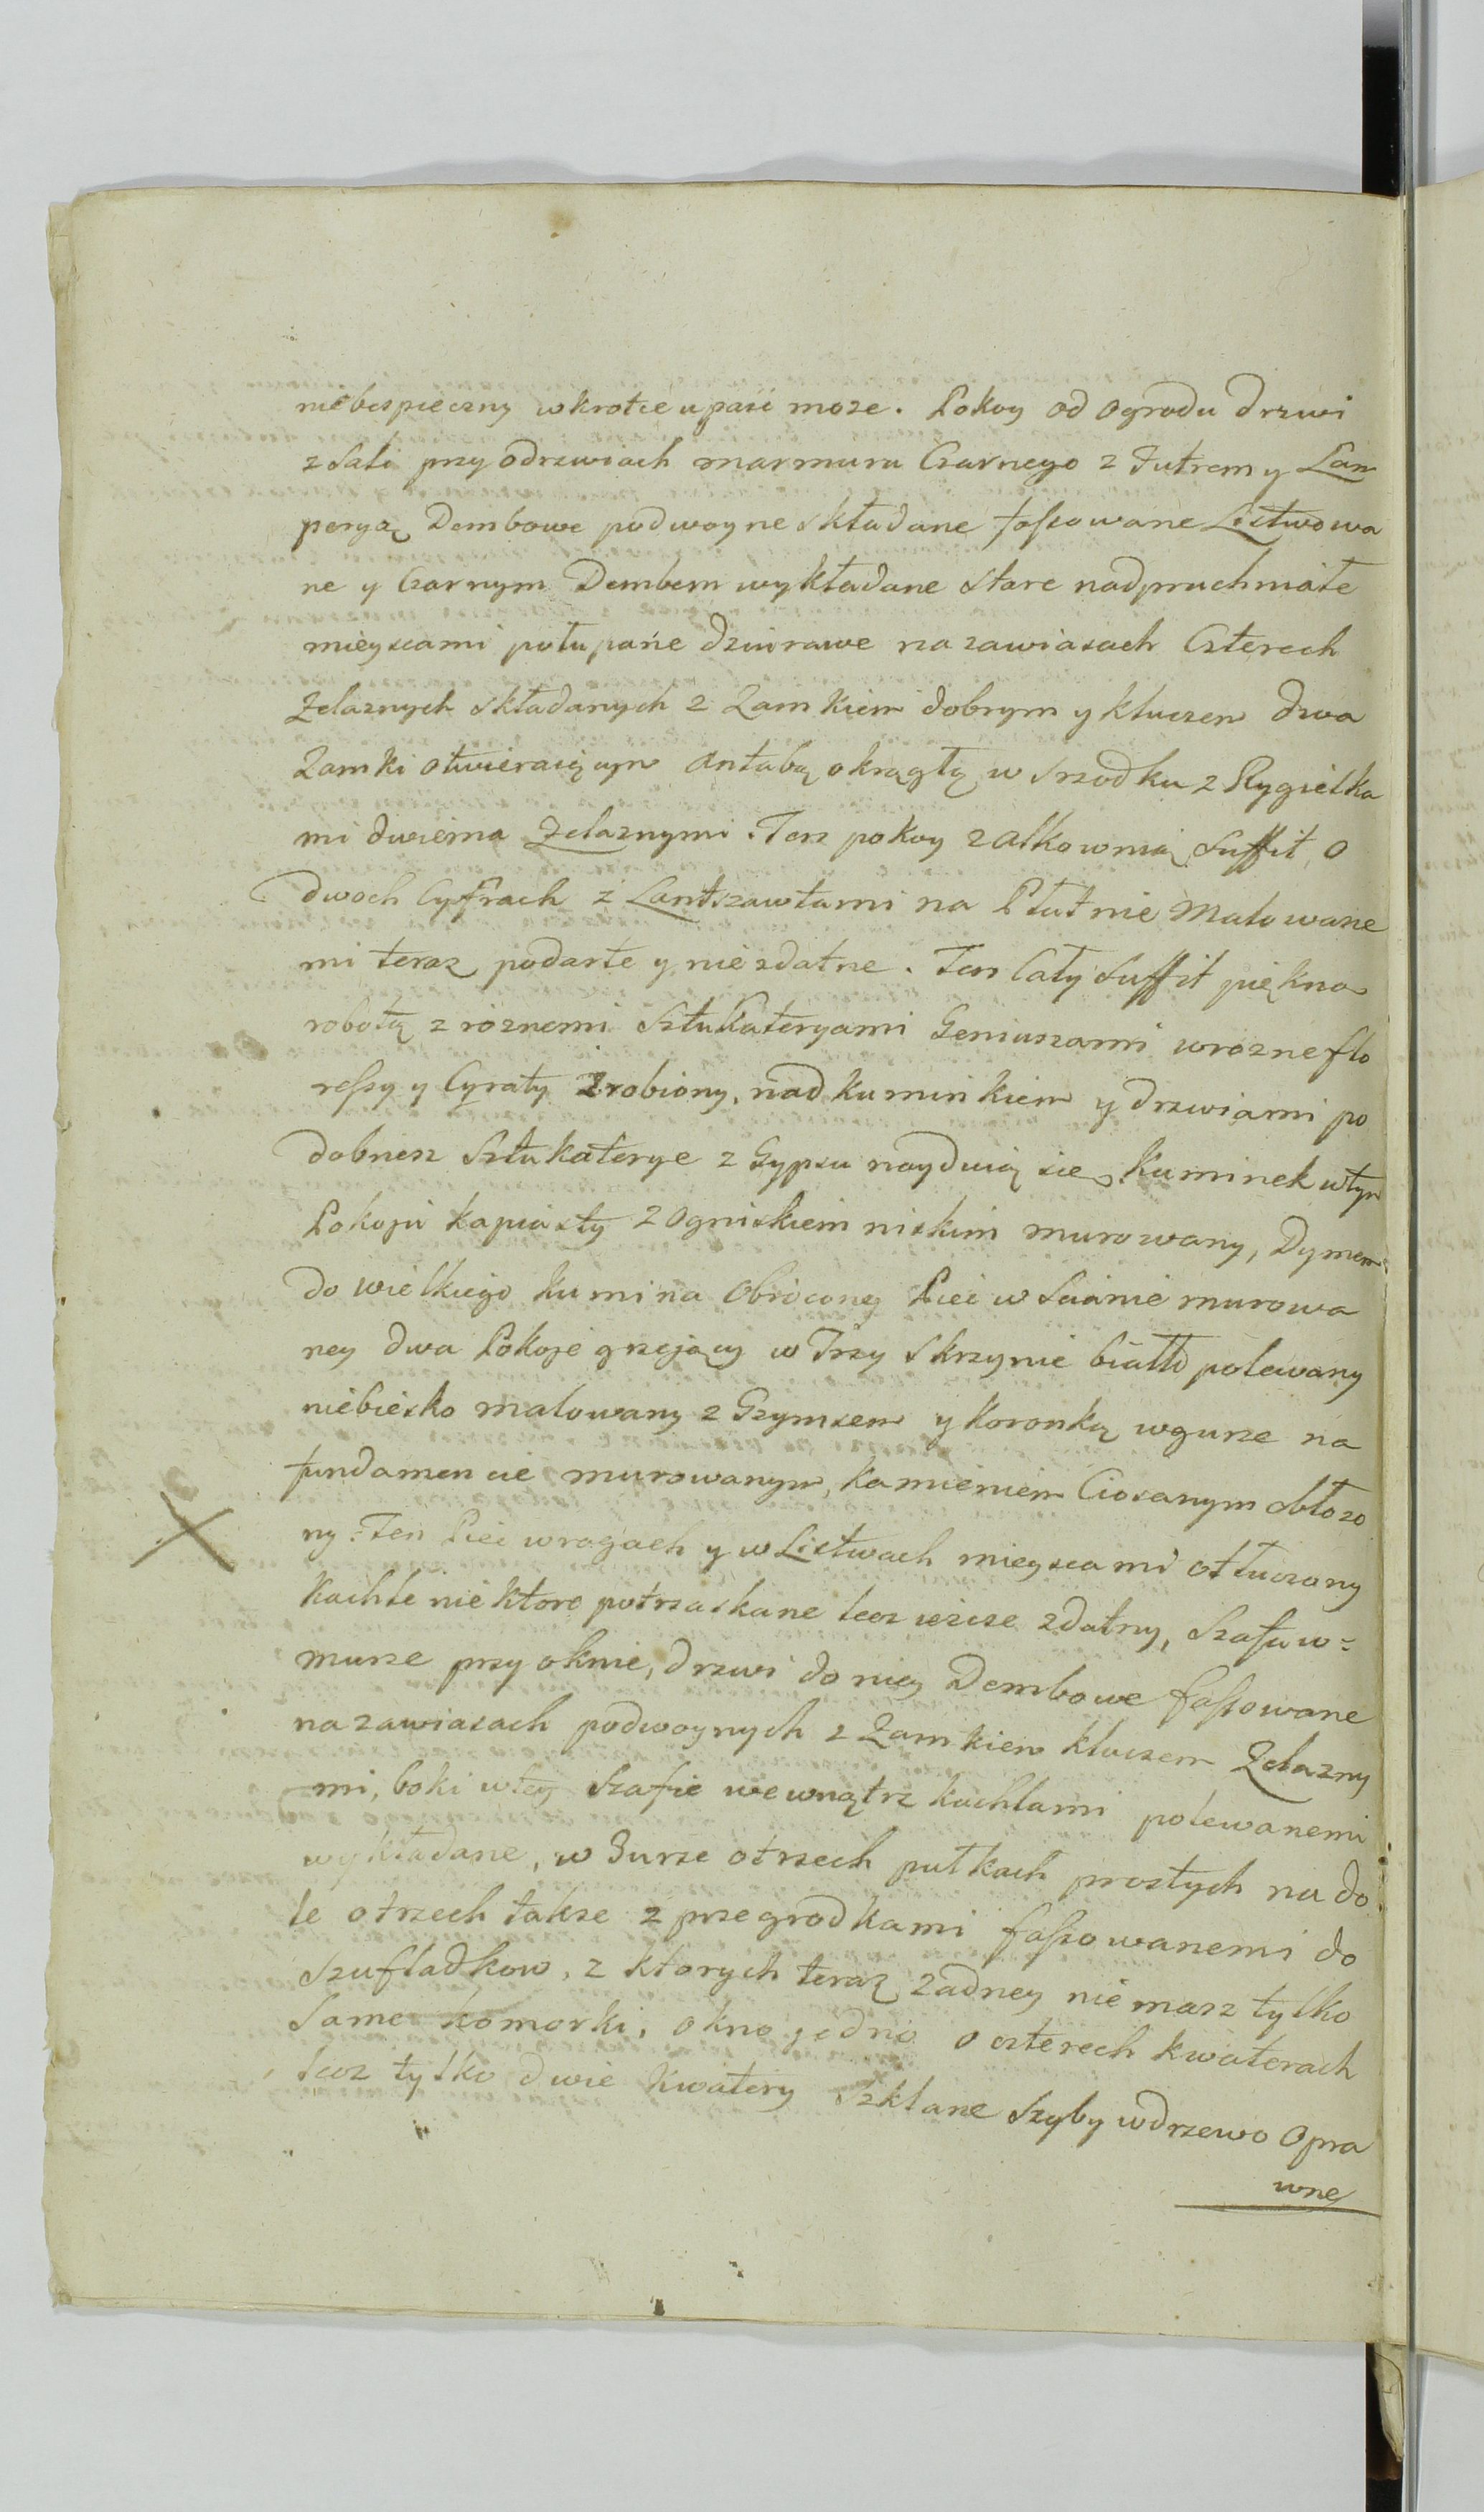 niebespieczny wkrotce upaść może. Pokoy od Ogrodu drzwi
z Sali przy odrzwiach marmuru Czarnego z Futrem y Lam
peryą Dembowe podwoyne składane fassowane Listwowa
ne y Czarnym Dembem wykładane stare nadpruchniałe
mieyscami połupane dziurawe na zawiasach Czterech
Zelaznych składanych z Zamkiem dobrym y kluczem dwa
Zamki otwieraiącym Antabą okrągłą w srzodku z Rygielka
mi dwiema Zelaznymi. Tenz pokoy z Alkownią, Suffit o
dwoch Cyfrach z Lantszawtami na Płutnie Malowane
mi teraz podarte y niezdatne. Ten Cały Suffit piękną
robotą z roznemi Sztukateryami Geniuszami wrozne flo
ressy y Cyraty Zrobiony, nad kuminkiem y drzwiami po
dobnesz Sztukaterye z Gypsu nayduią sie, Kuminek wtym
Pokoju kapiasty z Ogniskiem niskim murowany, Dymem
do wielkiego kumina Obrocony Piec w Scianie murowa
ney dwa Pokoje grzejący w Trzy Skrzynie biało polewany
niebiesko malowany z Gzymsem y koronką wgurze na
fundamencie murowanym, kamieniem Ciosanym obłozo
ny. Ten Piec wrogach y w Listwach mieyscami otłuczony
kachle niektore potrzaskane lecz ieszcze zdatny, Szafa w=
murze przy oknie, drzwi do niey Dembowe fassowane
na zawiasach podwoynych z Zamkiem kluczem Zelazny
mi, boki wtey Szafie wewnątrz kachlami polewanemi
wykładane, w Gurze otrzech pułkach prostych na do
le otrzech takze z przegrodkami fassowanemi do
Szufladkow, z ktorych teraz zadney nie masz tylko
Same komorki, okno jedno o czterech kwaterach
lecz tylko dwie Kwatery Szklane Szyby wdrzewo Opra
wne